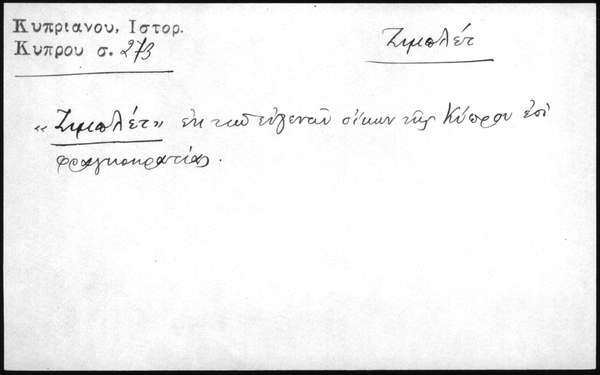 Κυπριανου, Ιστορ.
Κυπρου σ. 273
Ζιμπλέτ
«Ζιμπλέτ» ἐκ τῶν εὐγενῶν οἴκων τῆς Κύπρου ἐπὶ
φραγκοκρατίας.